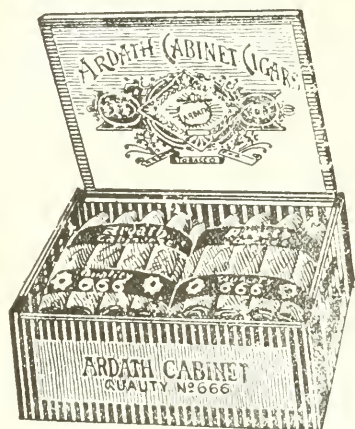 ARDATH CABINET CIGARS
ARDATH
TOBACCO
Ardath
Quality
666
666
ARDATH CABINET
QUALITY Nº 666